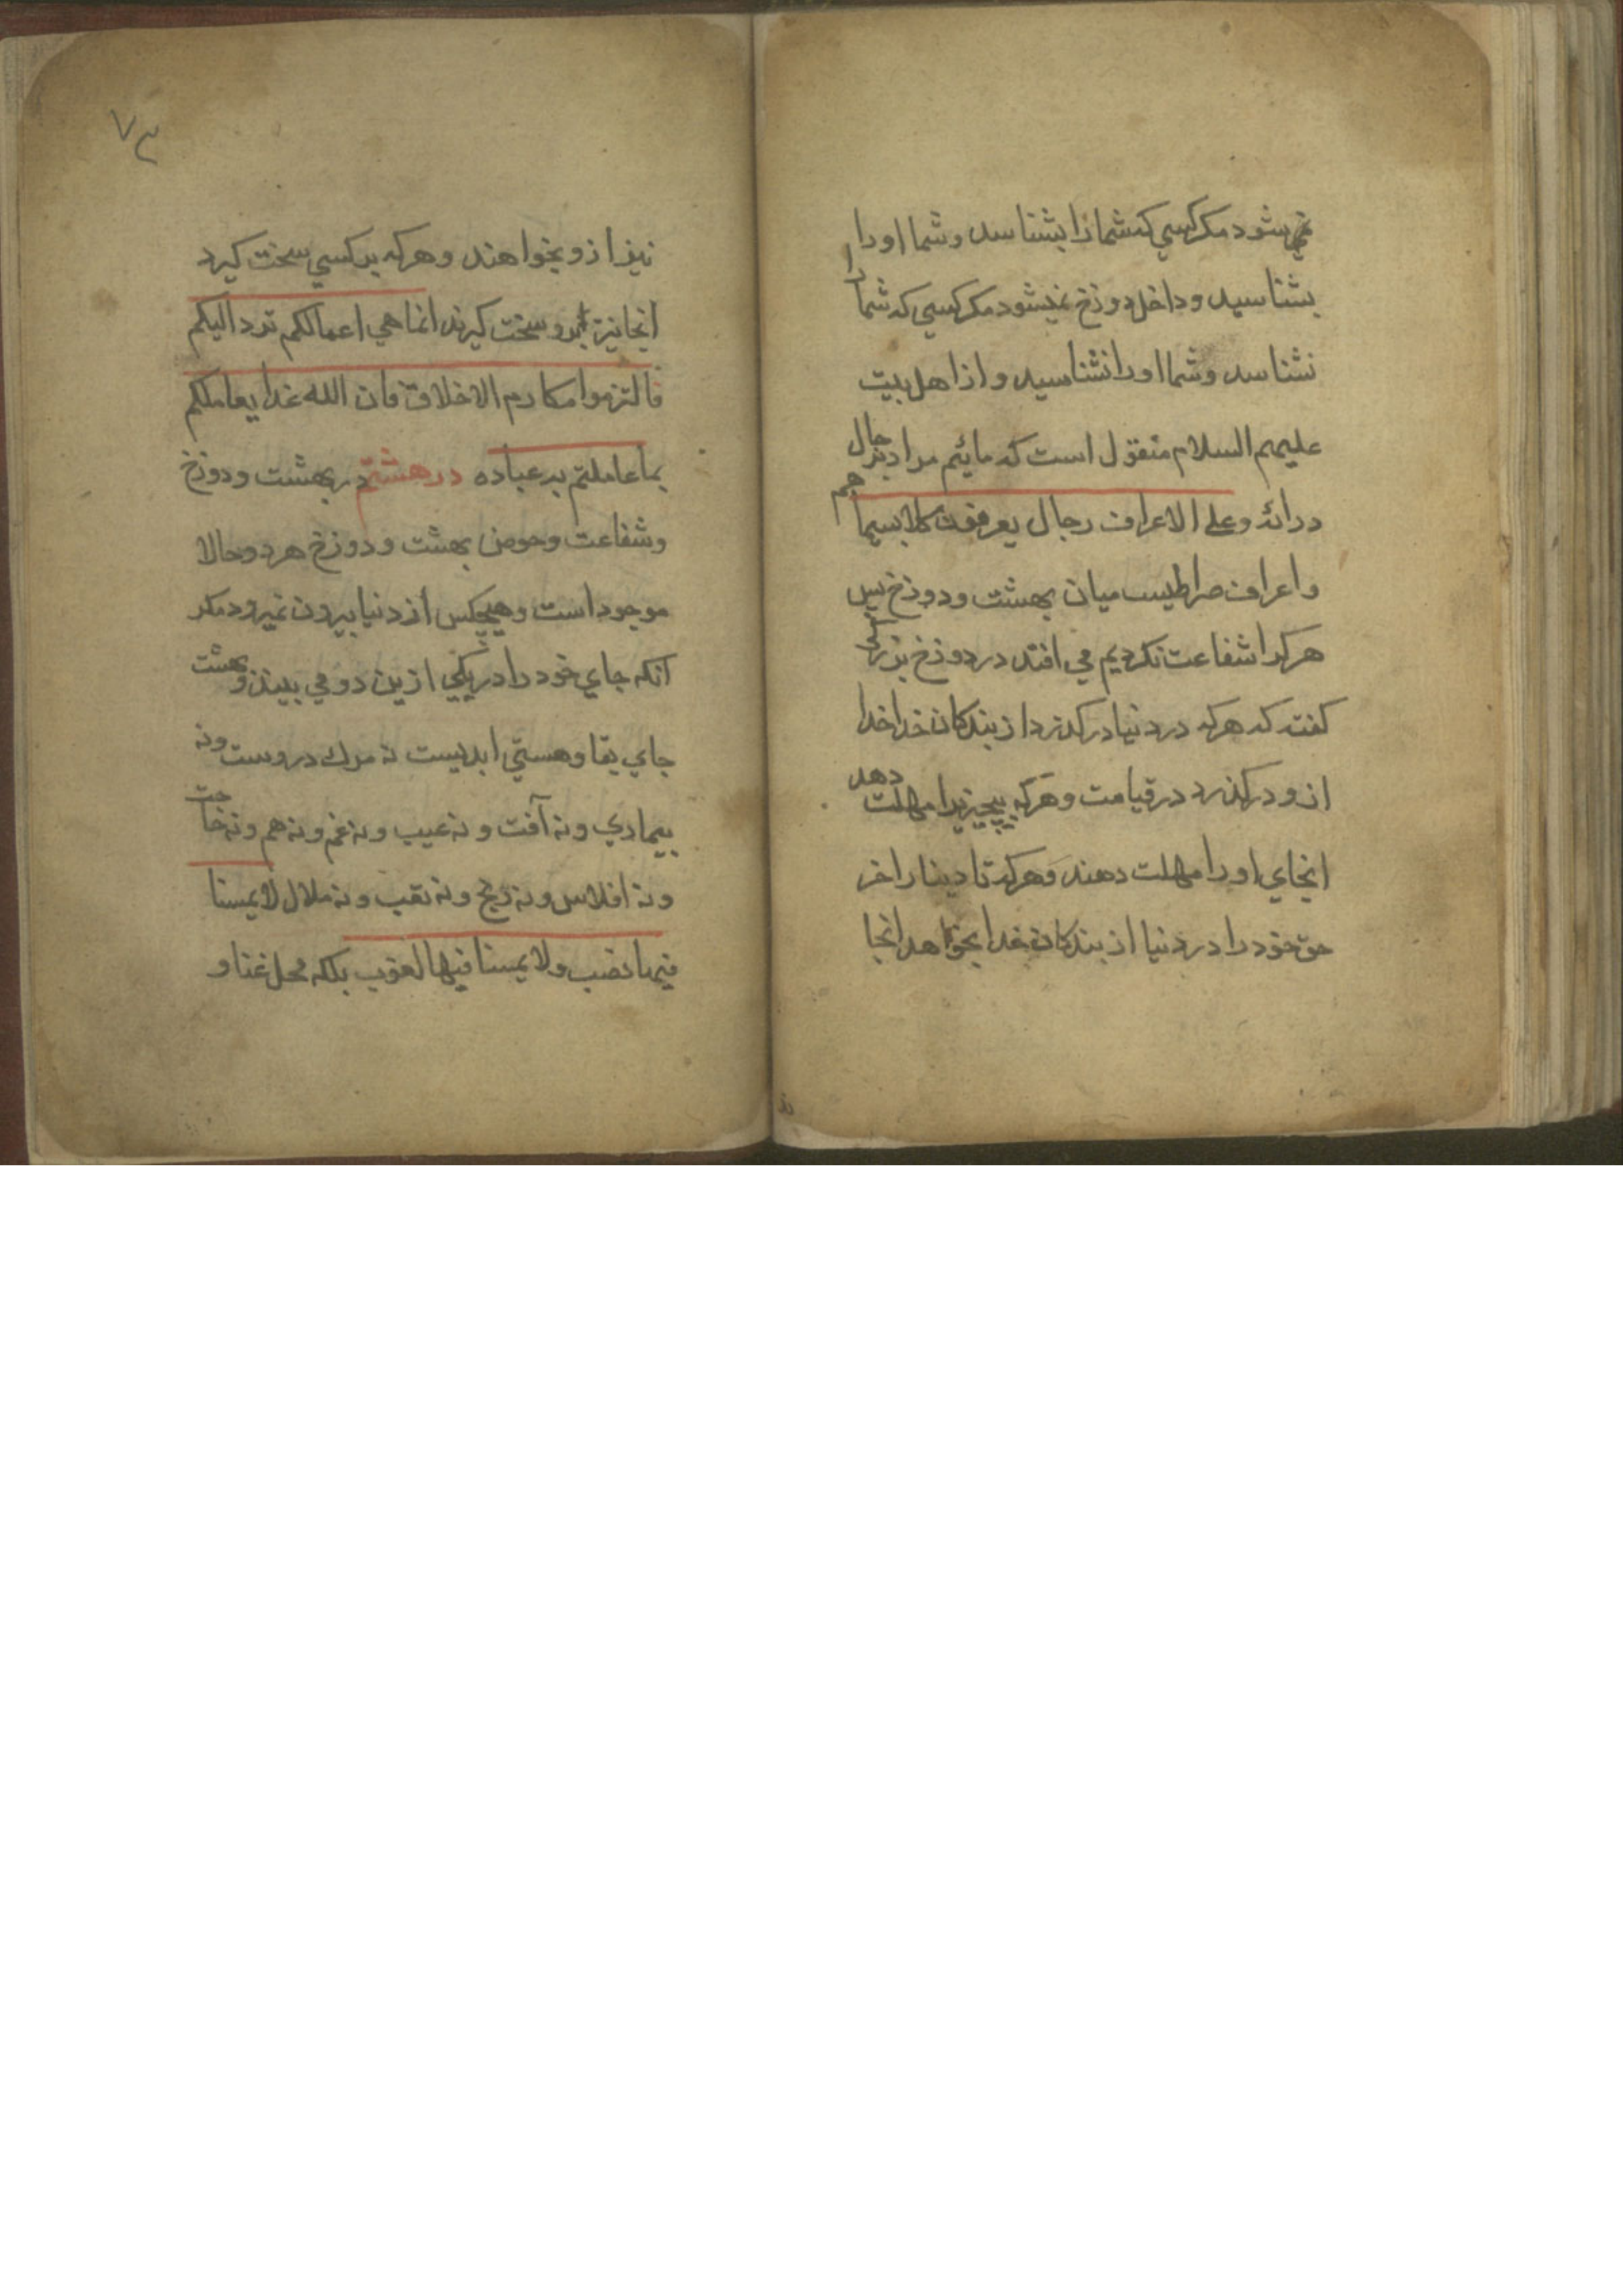 نمیشود مکر کسی که شما را بشناسد و شما او را
بشناسید و داخل دوزخ نمیشود مکر کسی که شما را
نشناسد و شما او را نشناسید و از اهل بیت
علیهم السلام منقول است که مائیم مراد برجال
در ائه و علی الاعراف رجال یعرفون کلا بسیماهم
و اعراف صراطیست میان بهشت و دوزخ پس
هر کرا شفاعت نکردیم می افتد در دوزخ
کفته که هر که در دنیا در کذرد از بندکان خدا خدا
ازو در کذرد در قیامت و هر که بیچیزیرا مهلت دهد
انجای او را مهلت دهند و هر که تا دینار اخر
حق خود را در دنیا از بندکان خدا بخواهد انجا
۷۳
نیز ازو بخواهند و هر که بر کسی سخت کیرد
انجا نیز برو سخت کیرند انما هی اعمالکم ترد الیکم
فالتزموا مکارم الاخلاق فان الله غدا یعاملکم
بما عاملتم به عباده در هشتم در بهشت و دوزخ
و شفاعت و حوض بهشت و دوزخ هر دو حالا
موجود است و هیچکس از دنیا بیرون نمیرود مکر
آنکه جای خود را در یکی ازین دو می بیند و بهشت
جای بقا و هستی ابدیست نه مرک دروست و نه
بیماری و نه آفت و نه عیب و نه غم و نه هم و نه حاجت
و نه افلاس و نه رنج و نه تعب و نه ملال لا یمسنا
فیها نصب و لا یمسنا فیها لغوب بلکه محل غنا و